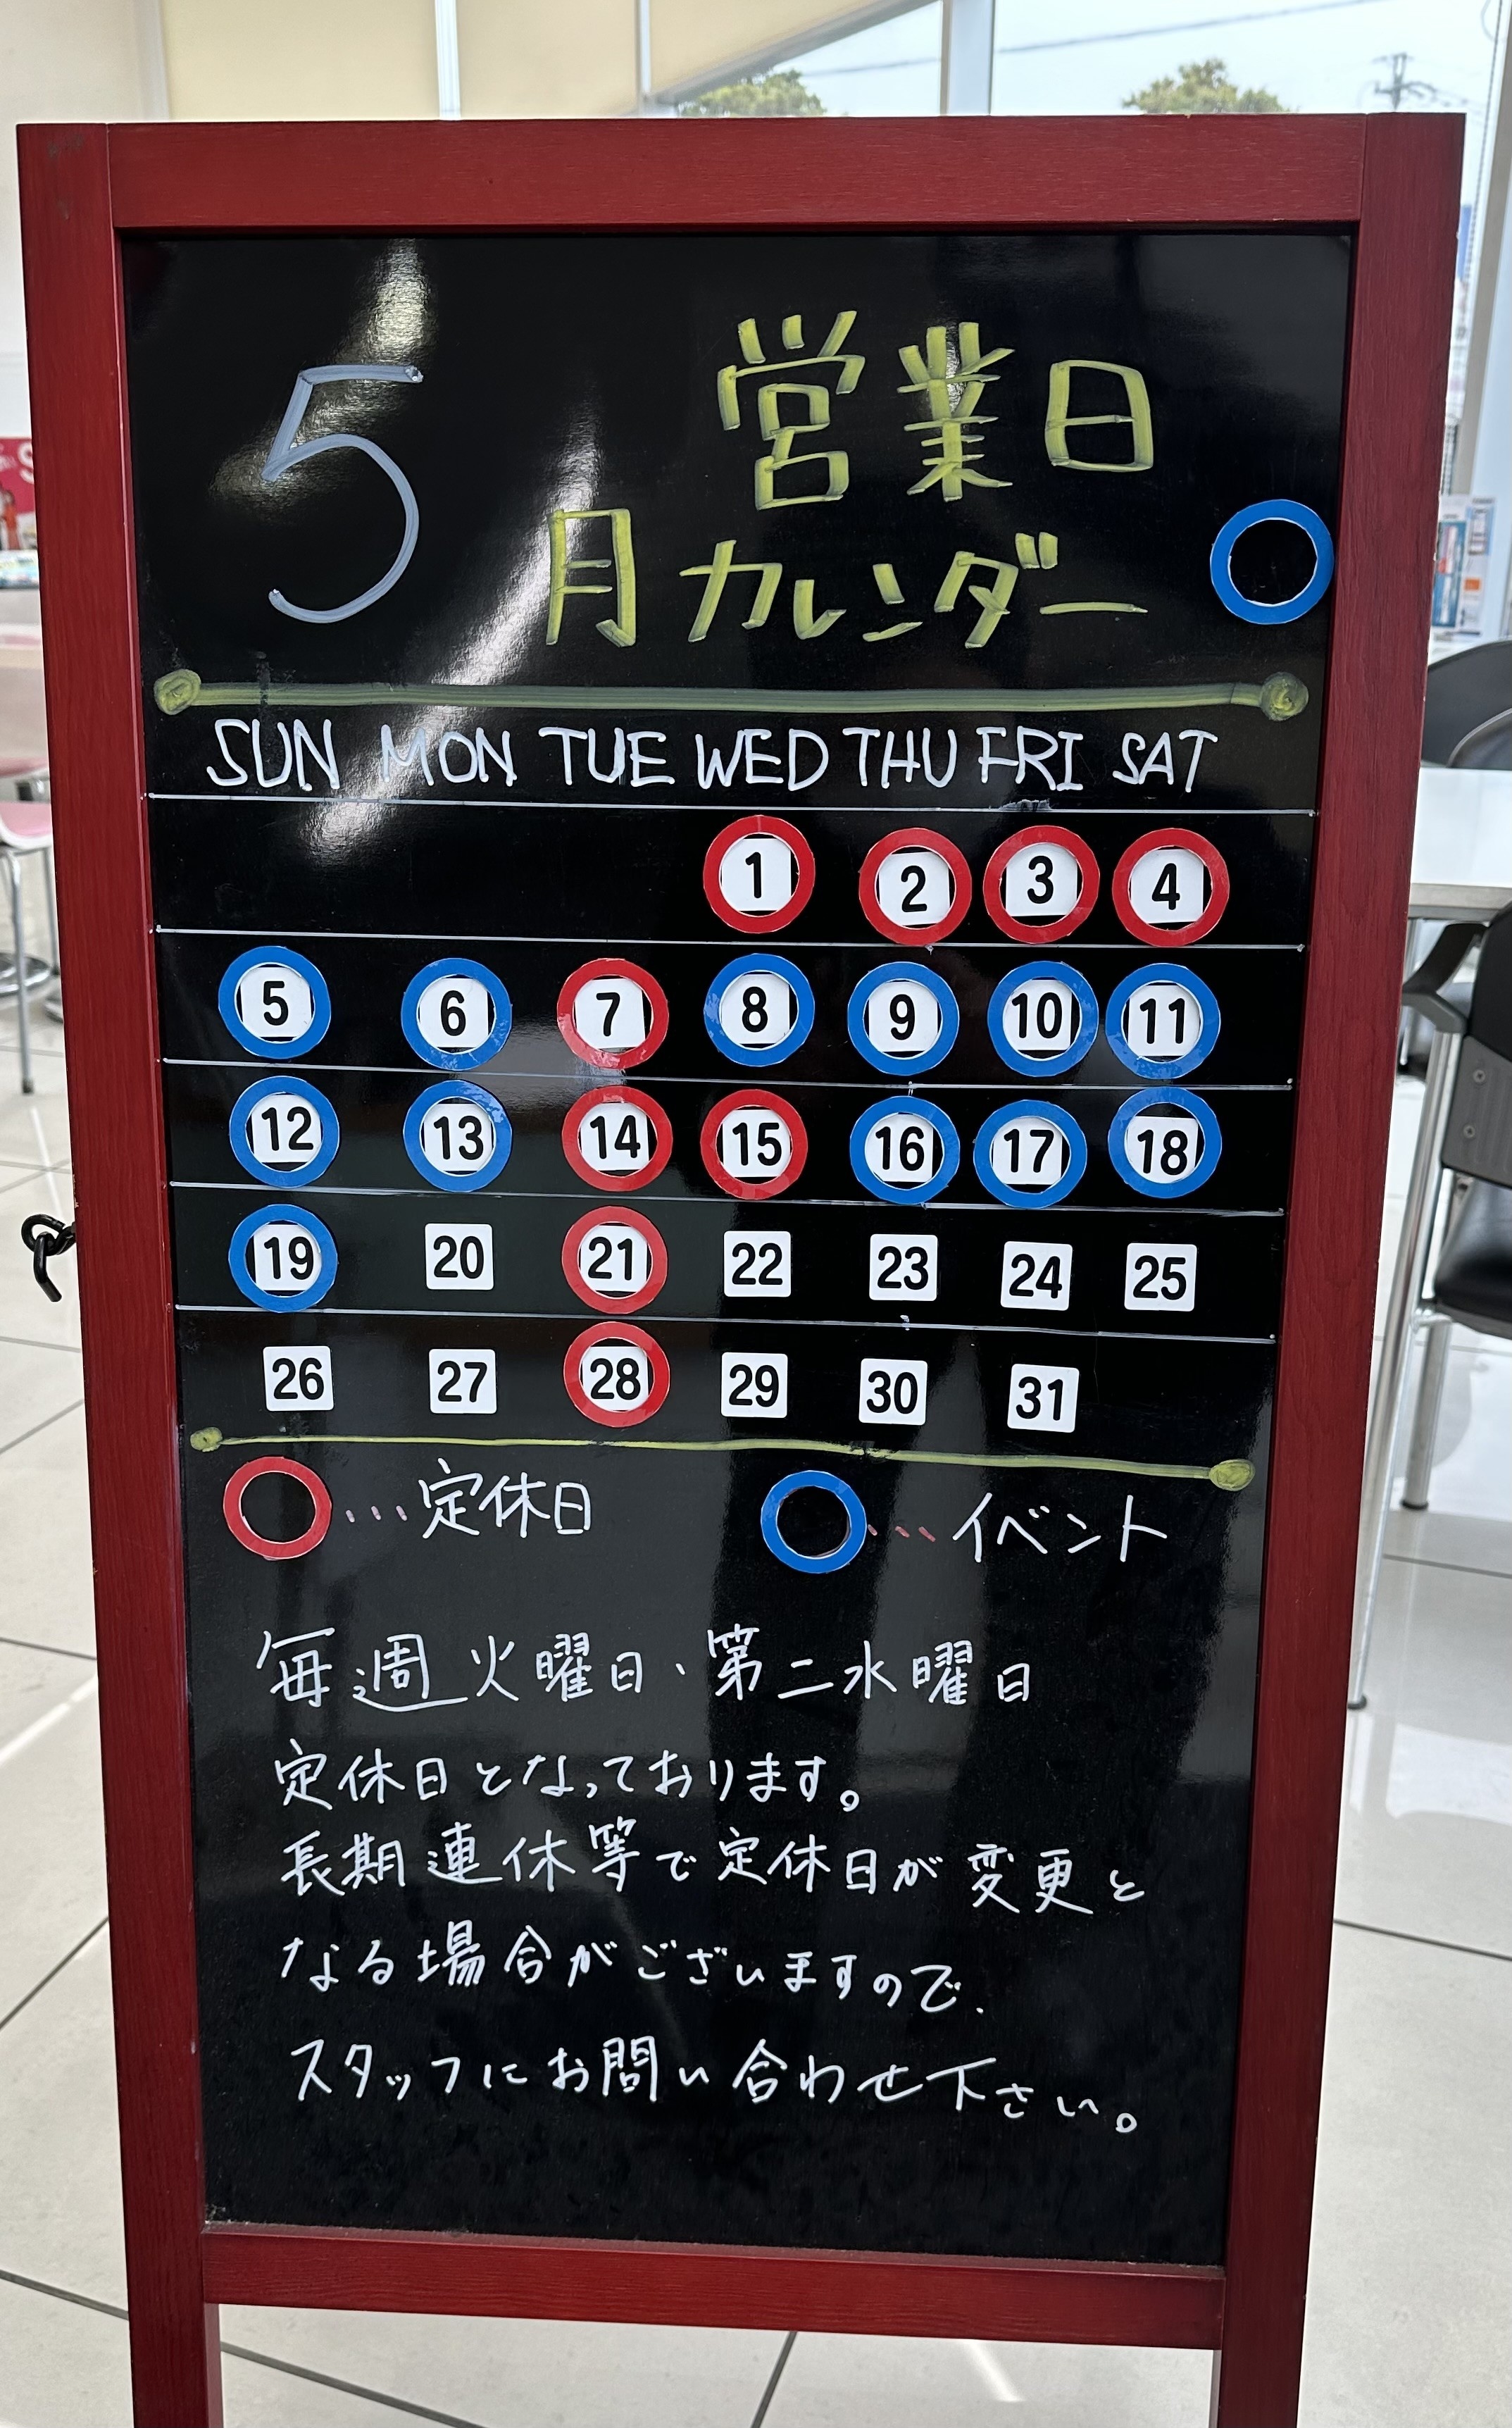 5 営業日
月カレンダー
SUN MON TUE WED THU FRI SAT
1 2 3 4
5 6 7 8 9 10 11
12 13 14 15 16 17 18
19 20 21 22 23 24 25
26 27 28 29 30 31
…定休日 …イベント
毎週火曜日、第二水曜日
定休日となっております。
長期連休等で定休日が変更と
なる場合がございますので、
スタッフにお問い合わせ下さい。